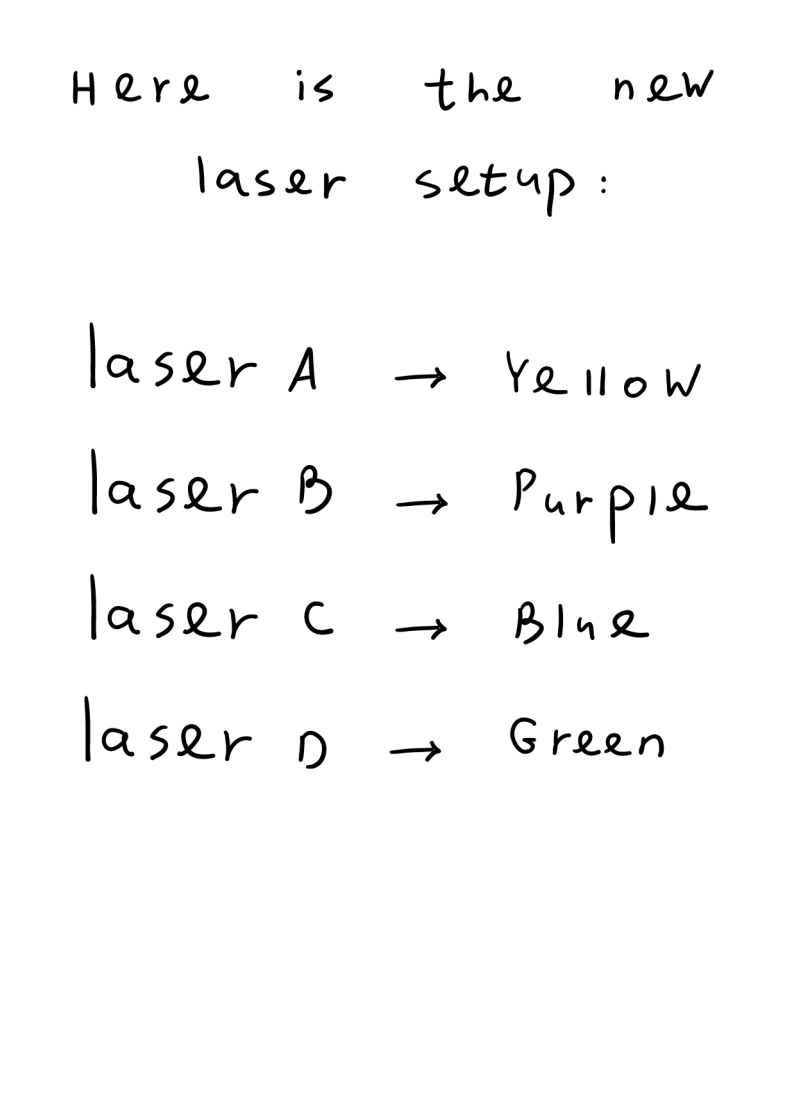 Here is the new
laser setup:
laser A → Yellow
laser B → Purple
laser C → Blue
laser D → Green